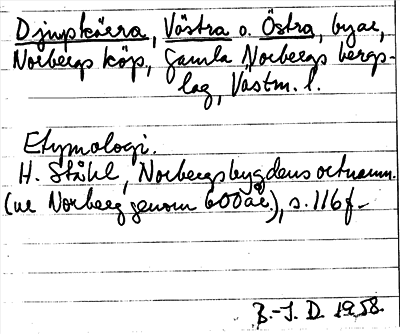 Djupkärra, Västra o. Östra, byar,
Norbergs köp, Gamla Norbergs bergs-
lag, Västm. l.
Etymologi.
H. Ståhl, Norbergsbygdens ortnamn.
(ur Norberg genom 600 år), s. 116f-
B.-J. D. 1958.